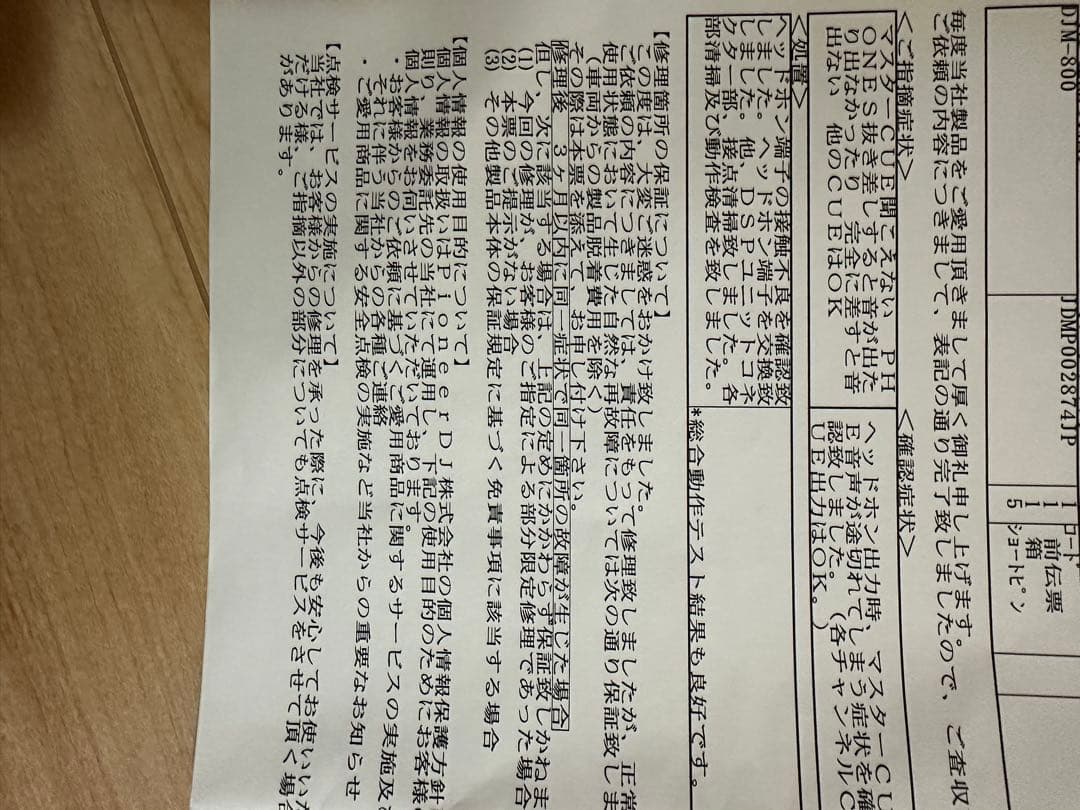 DJM-800
JDMP002874JP
1
1
5
コード
前伝票
箱
ショートピン
毎度当社製品をご愛用頂きまして厚く御礼申し上げます。
ご依頼の内容につきまして、表記の通り完了致しましたので、ご査収
<ご指摘症状>
マスターCUE聞こえない PH
ONES抜き差しすると音が出た
り出なかったり 完全に差すと音
出ない 他のCUEはOK
<確認症状>
ヘッドホン出力時、マスターCU
E音声が途切れてしまう症状を確
認致しました。(各チャンネルC
UE出力はOK。)
<処置>
ヘッドホン端子の接触不良を確認致
しました。ヘッドホン端子を交換致
しました。他、DSPユニットコネ
クター部、接点清掃致しました。各
部清掃及び動作検査を致しました。
*総合動作テスト結果も良好です。
【修理箇所の保証について】
この度は、大変ご迷惑をおかけ致しました。
ご依頼の内容につきましては、責任をもって修理致しましたが、正常
使用状態において生じた自然な再故障については次の通り保証致しま
(車両からの製品脱着費用を除く)
その際は本票を添えて、お申し付け下さい。
修理後 3ヶ月以内に同一症状で同一箇所の故障が生じた場合
但し、次に該当する場合は、上記の定めにかかわらず保証致しかねま
(1) 今回の修理が、お客様のご指定による部分限定修理であった場合
(2) 本票のご提示がない場合
(3) その他製品本体の保証規定に基づく免責事項に該当する場合
【個人情報の使用目的について】
個人情報の取扱いはPioneerDJ株式会社の個人情報保護方針
則り、業務委託先の当社にて運用し、下記の使用目的のためにお客様の
個人情報をお伺いさせていただいております。
・お客様からのご依頼に基づくご愛用商品に関するサービスの実施及
それに伴う当社からの各種ご連絡
・ご愛用商品に関する安全点検の実施など当社からの重要なお知らせ
【点検サービスの実施について】
当社では、お客様からの修理を承った際に、今後も安心してお使いいた
だける様、ご指摘以外の部分についても点検サービスをさせて頂く場合
があります。